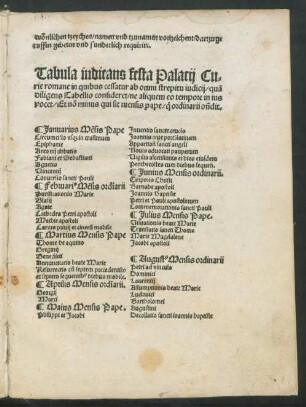 wönlichen zeychen/namen vnd zunamen vorzeichent/dartzu
gebeten vnd sunderlich requirirt.
Tabula indicans festa Palatij Cu
rie romane in quibus cessatur ab omni strepitu iudicij/quā
diligens Tabellio consideret ne aliquem eo tempore in ius
vocet/Et nō minus qui sit mensis pape/ ordinarij ondit.
¶ Januarius Mēsis Pape
Circumcisio
Epiphanie
Antonij abbatis
Fabiani et Sebastiani
Agnetis
Vincentij
¶ Februariꝰ Mēsis ordinarij
Purificationis Marie
Blasij
Agate
Cathedra Petri apostoli
Mathie apostoli
¶ Martius Mensis Pape
Thome de aquino
Gregorij
Benedicti
Annunciationis beate Marie
¶ Aprilis Mensis ordinarij.
Georgij
Marci
¶ Maius Mensis Pape.
Philippi et Jacobi
Inuentio sancte crucis
Joannis ante portā latinam
Apparitio sancti angeli
Vigilia ascensionis et dies eiusdem
¶ Junius Mensis ordinarij.
Corporis Christi
Barnabe apostoli
Joannis Baptiste
Petri et Pauli apostolorum
Commemorationis sancti Pauli
¶ Julius Mensis Pape.
Visitationis beate Marie
Translatio sancti Thome
Marie Magdalene
Jacobi apostoli
¶ Augustꝰ Mensis ordinarij
Petri ad vincula
Dominici
Laurentij
Assumptionis beate Marie
Ludouici
Bartholomei
Augustini
Decollatio sancti ioannis baptiste